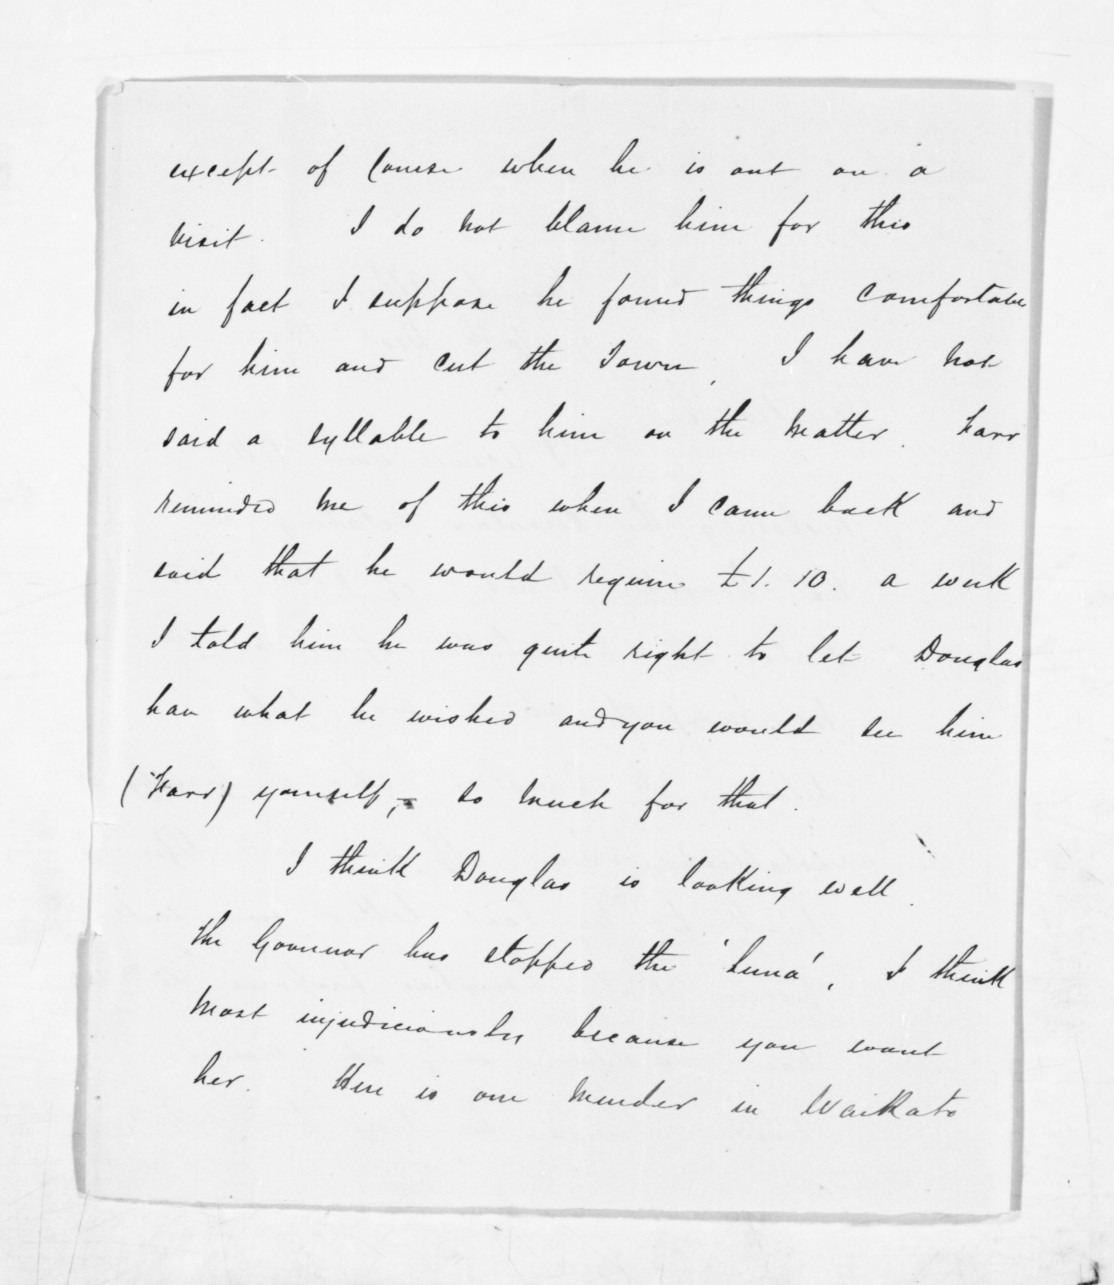 except of course when he is out on a
visit. I do not blame him for this
in fact I suppose he found things comfortable
for him and cut the Town, I have not
said a syllable to him on the matter. Farr
reminded me of this when I came back and
said that he would require £1. 10. a week
I told him he was quite right to let Douglas
have what he wished and you would see him
(Farr) yourself, - so much for that.
I think Douglas is looking well.
The Governor has stopped the 'Luna', I think
most injudiciously because you want
her. Here is one murder in Waikato